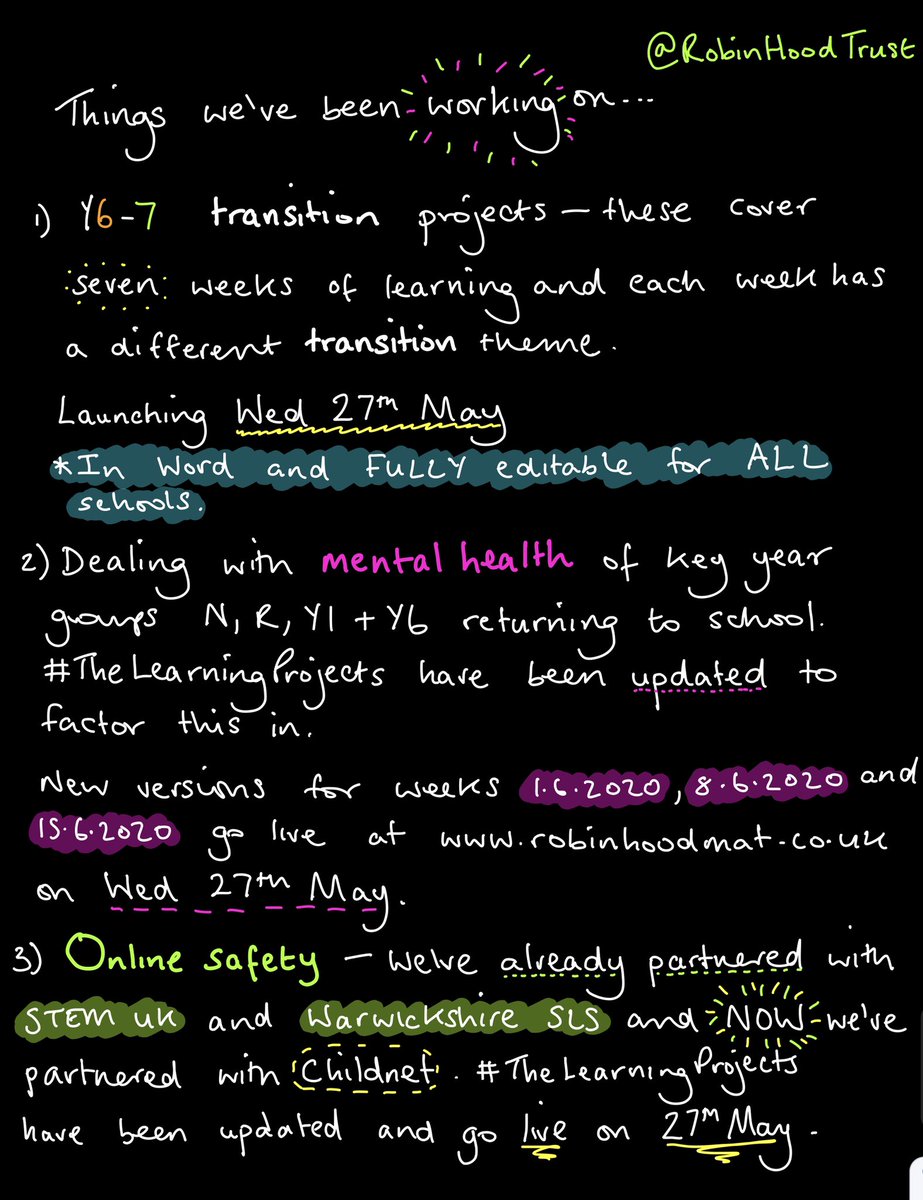 @RobinHoodTrust
Things we've been working on...
1) Y6-7 transition projects - these cover
seven weeks of learning and each week has
a different transition theme.
Launching Wed 27th May
*In Word and FULLY editable for ALL
schools.
2) Dealing with mental health of key year
groups N, R, Y1 + Y6 returning to school.
#TheLearningProjects have been updated to
factor this in.
New versions for weeks 1.6.2020, 8.6.2020 and
15.6.2020 go live at www.robinhoodmat.co.uk
on Wed 27th May.
3) Online safety - we've already partnered with
STEM UK and Warwickshire SLS and NOW we've
partnered with Childnet. #TheLearningProjects
have been updated and go live on 27th May.